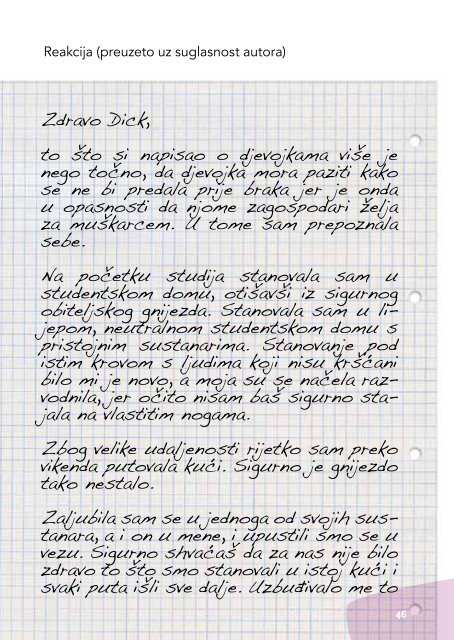 Reakcija (preuzeto uz suglasnost autora)
Zdravo Dick,
to što si napisao o djevojkama više je
nego točno, da djevojka mora paziti kako
se ne bi predala prije braka jer je onda
u opasnosti da njome zagospodari želja
za muškarcem. U tome sam prepoznala
sebe.
Na početku studija stanovala sam u
studentskom domu, otišavši iz sigurnog
obiteljskog gnijezda. Stanovala sam u li-
jepom, neutralnom studentskom domu s
pristojnim sustanarima. Stanovanje pod
istim krovom s ljudima koji nisu kršćani
bilo mi je novo, a moja su se načela raz-
vodnila, jer očito nisam baš sigurno sta-
jala na vlastitim nogama.
Zbog velike udaljenosti rijetko sam preko
vikenda putovala kući. Sigurno je gnijezdo
tako nestalo.
Zaljubila sam se u jednoga od svojih sus-
tanara, a i on u mene, i upustili smo se u
vezu. Sigurno shvaćaš da za nas nije bilo
zdravo to što smo stanovali u istoj kući i
svaki puta išli sve dalje. Uzbuđivalo me to
46